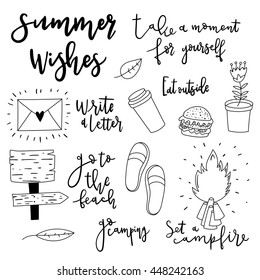 Summer
Wishes
take a moment
for yourself
Eat outside
Write
a letter
go to
the
beach
go
camping
Set a
campfire
www.shutterstock.com · 448242163